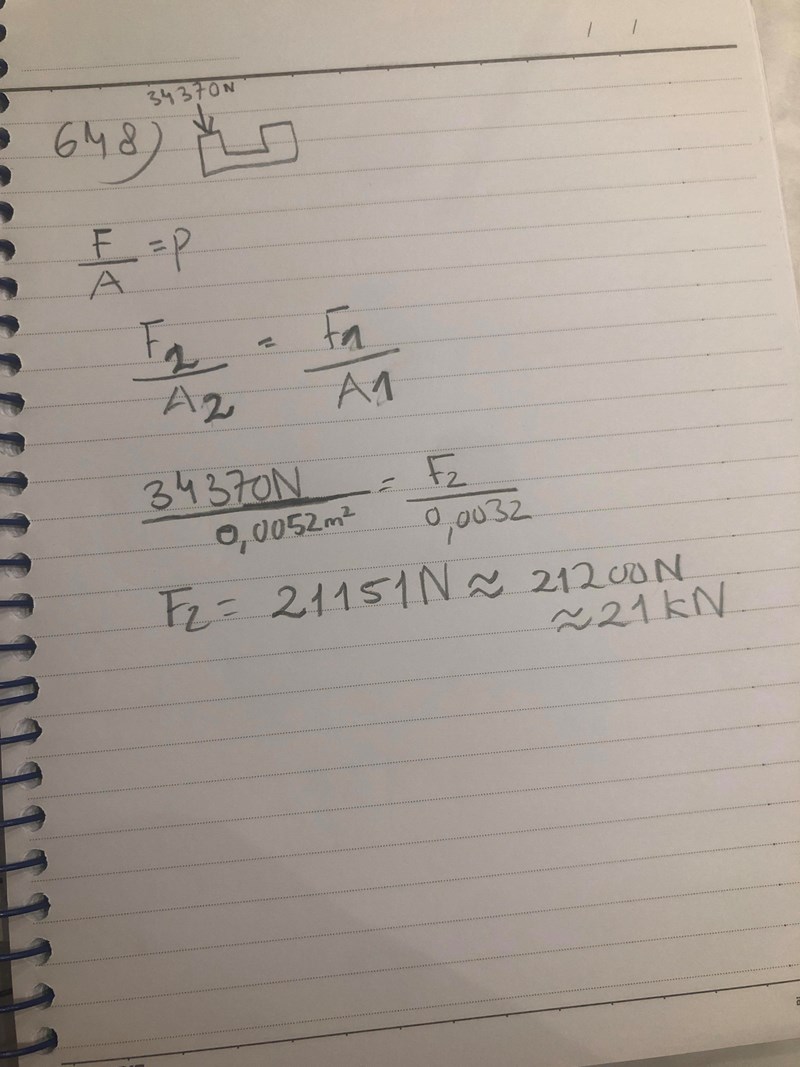 34370N
648)
F/A = P
F2/A2 = F1/A1
34370N/0,0052m² = F2/0,0032
F2 = 21151N ≈ 21200N
≈ 21kN